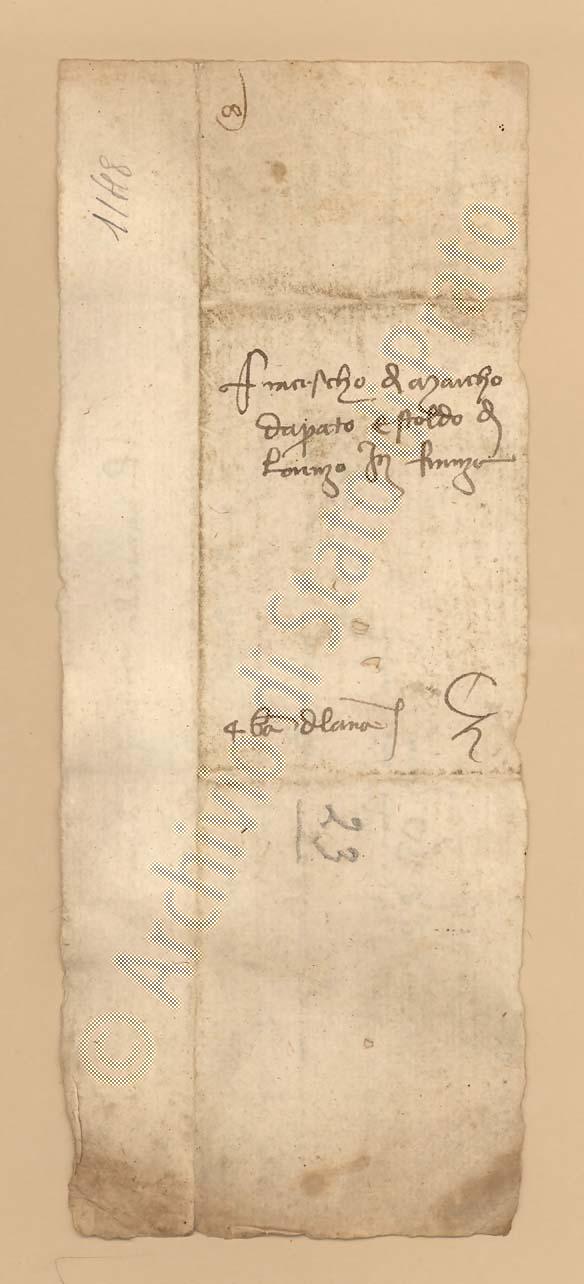 8
1148
Francescho di Marcho
da Prato e Stoldo di
Lorenzo in Firenze
4 ba di lana
23
© Archivio di Stato di Prato